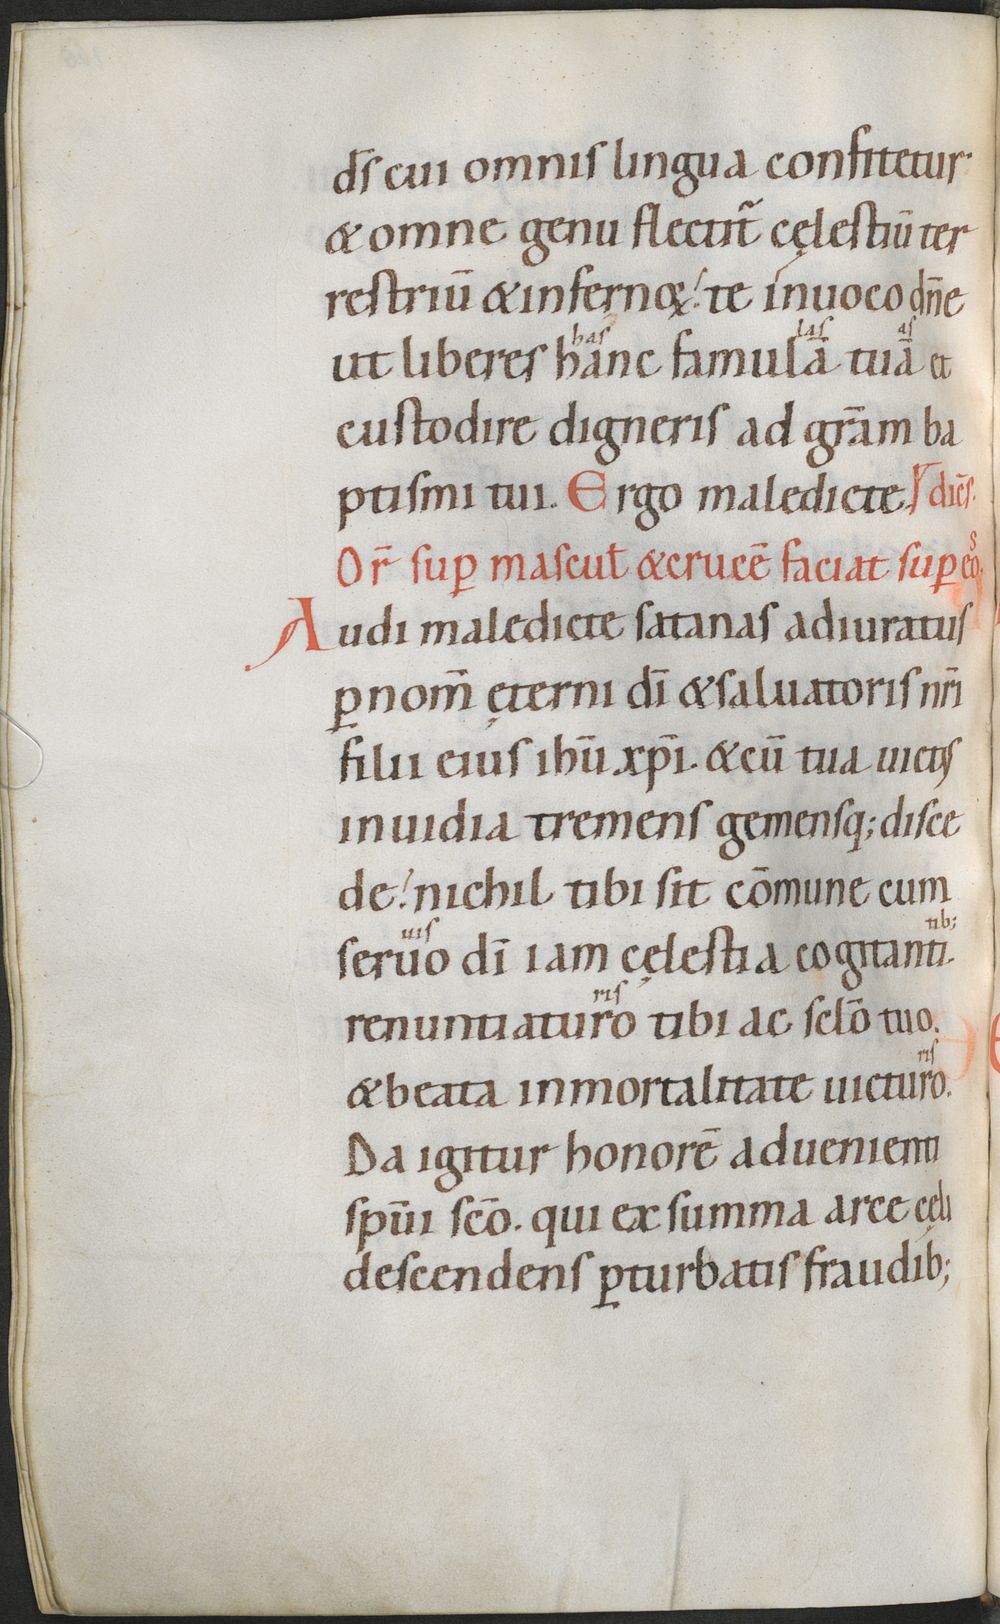 ds̄ cui omnis lingua confitetur
& omne genu flectit̃ cęlestiū ter
restriū & infernoꝝ. te inuoco dñe
has las as
ut liberes hanc famulā tuā et
custodire digneris ad grām ba
ptismi tui. Ergo maledicte.
Or̄ sup mascul̄ & crucē faciat sup eos
Audi maledicte satanas adiuratus
ꝑ nom̄ ęterni dī & saluatoris nr̄i
filii eius ihū xp̄i. & cū tua uictus
inuidia tremens gemensq; disce
de. nichil tibi sit cōmune cum
uis tib;
seruo dī iam cęlestia cogitanti.
ris
renuntiaturo tibi ac sclō tuo.
ris
& beata inmortalitate uicturo.
Da igitur honorē aduenienti
spūi scō. qui ex summa arce cęli
descendens ꝑturbatis fraudib;